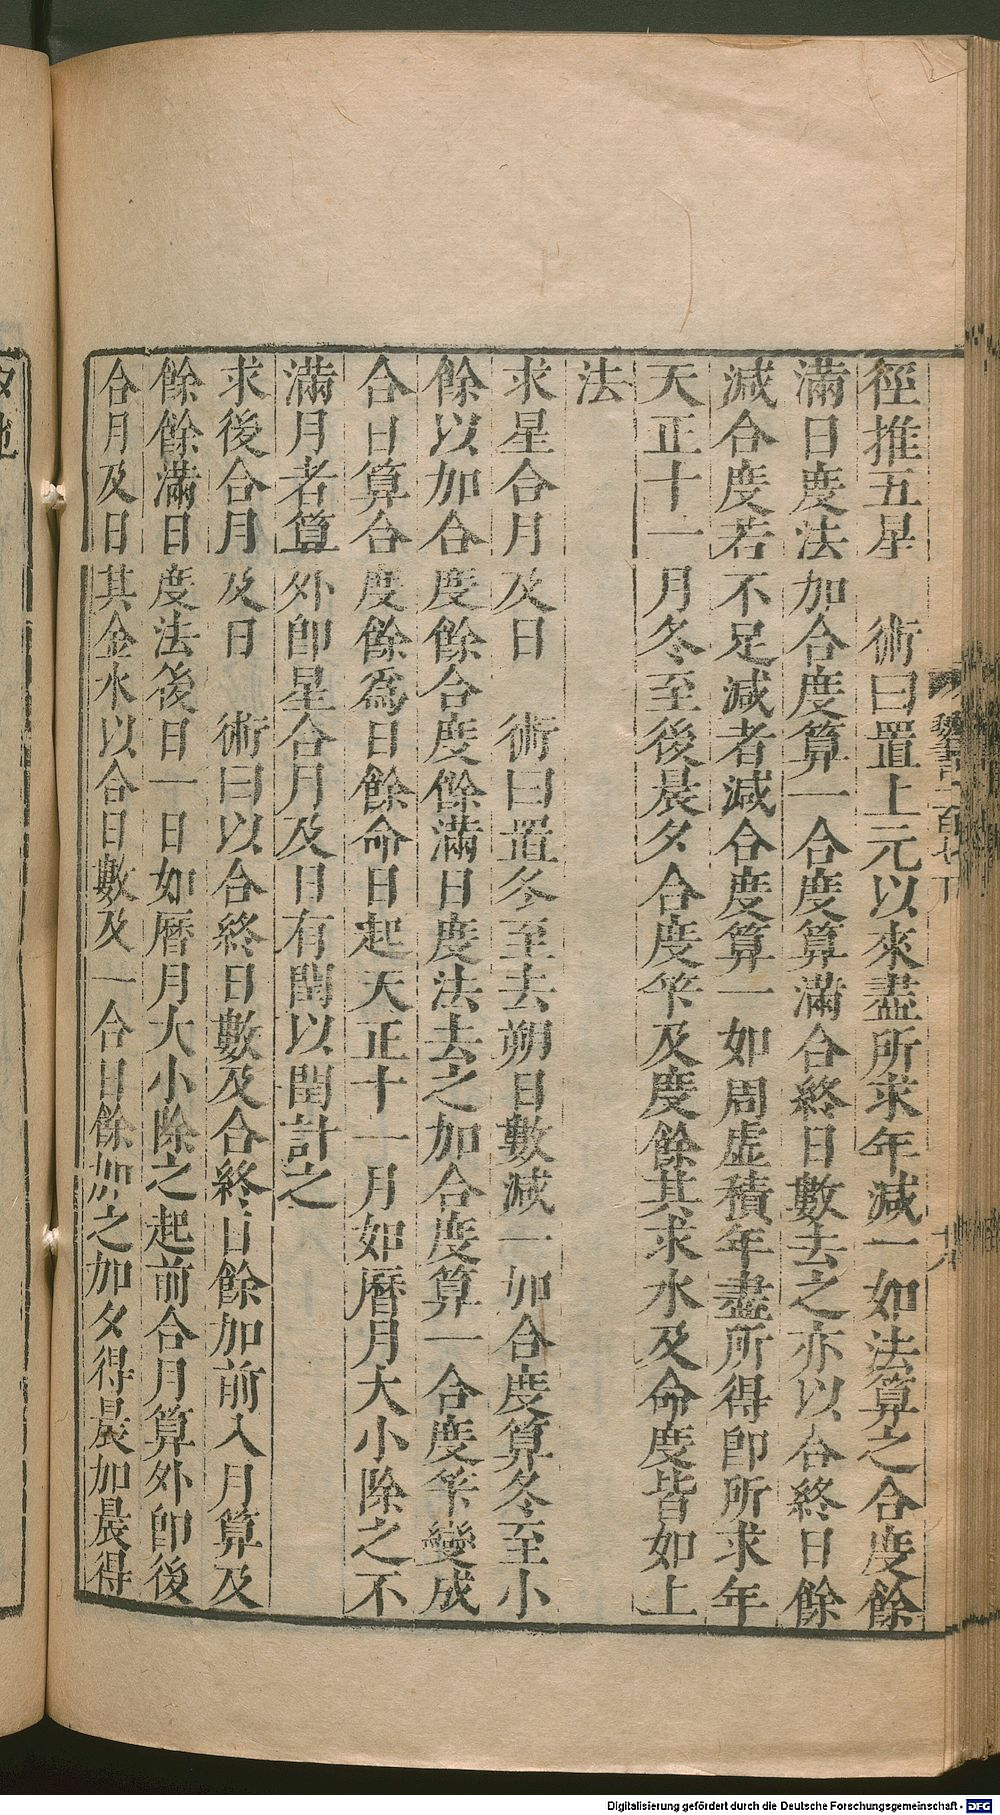 徑推五星　術曰置上元以來盡所求年減一如法算之合度餘
滿日度法加合度算一合度算滿合終日數去之亦以合終日餘
減合度若不足減者減合度算一如周虛積年盡所得卽所求年
天正十一月冬至後晨夕合度筭及度餘其求水及命度皆如上
法
求星合月及日　術曰置冬至去朔日數減一加合度算冬至小
餘以加合度餘合度餘滿日度法去之加合度算一合度筭變成
合日算合度餘爲日餘命日起天正十一月如曆月大小除之不
滿月者算外卽星合月及日有閏以閏計之
求後合月及日　術曰以合終日數及合終日餘加前入月算及
餘餘滿日度法後日一日如曆月大小除之起前合月算外卽後
合月及日其金水以合日數及一合日餘加之加夕得晨加晨得
魏書一百七下
Digitalisierung gefördert durch die Deutsche Forschungsgemeinschaft - DFG